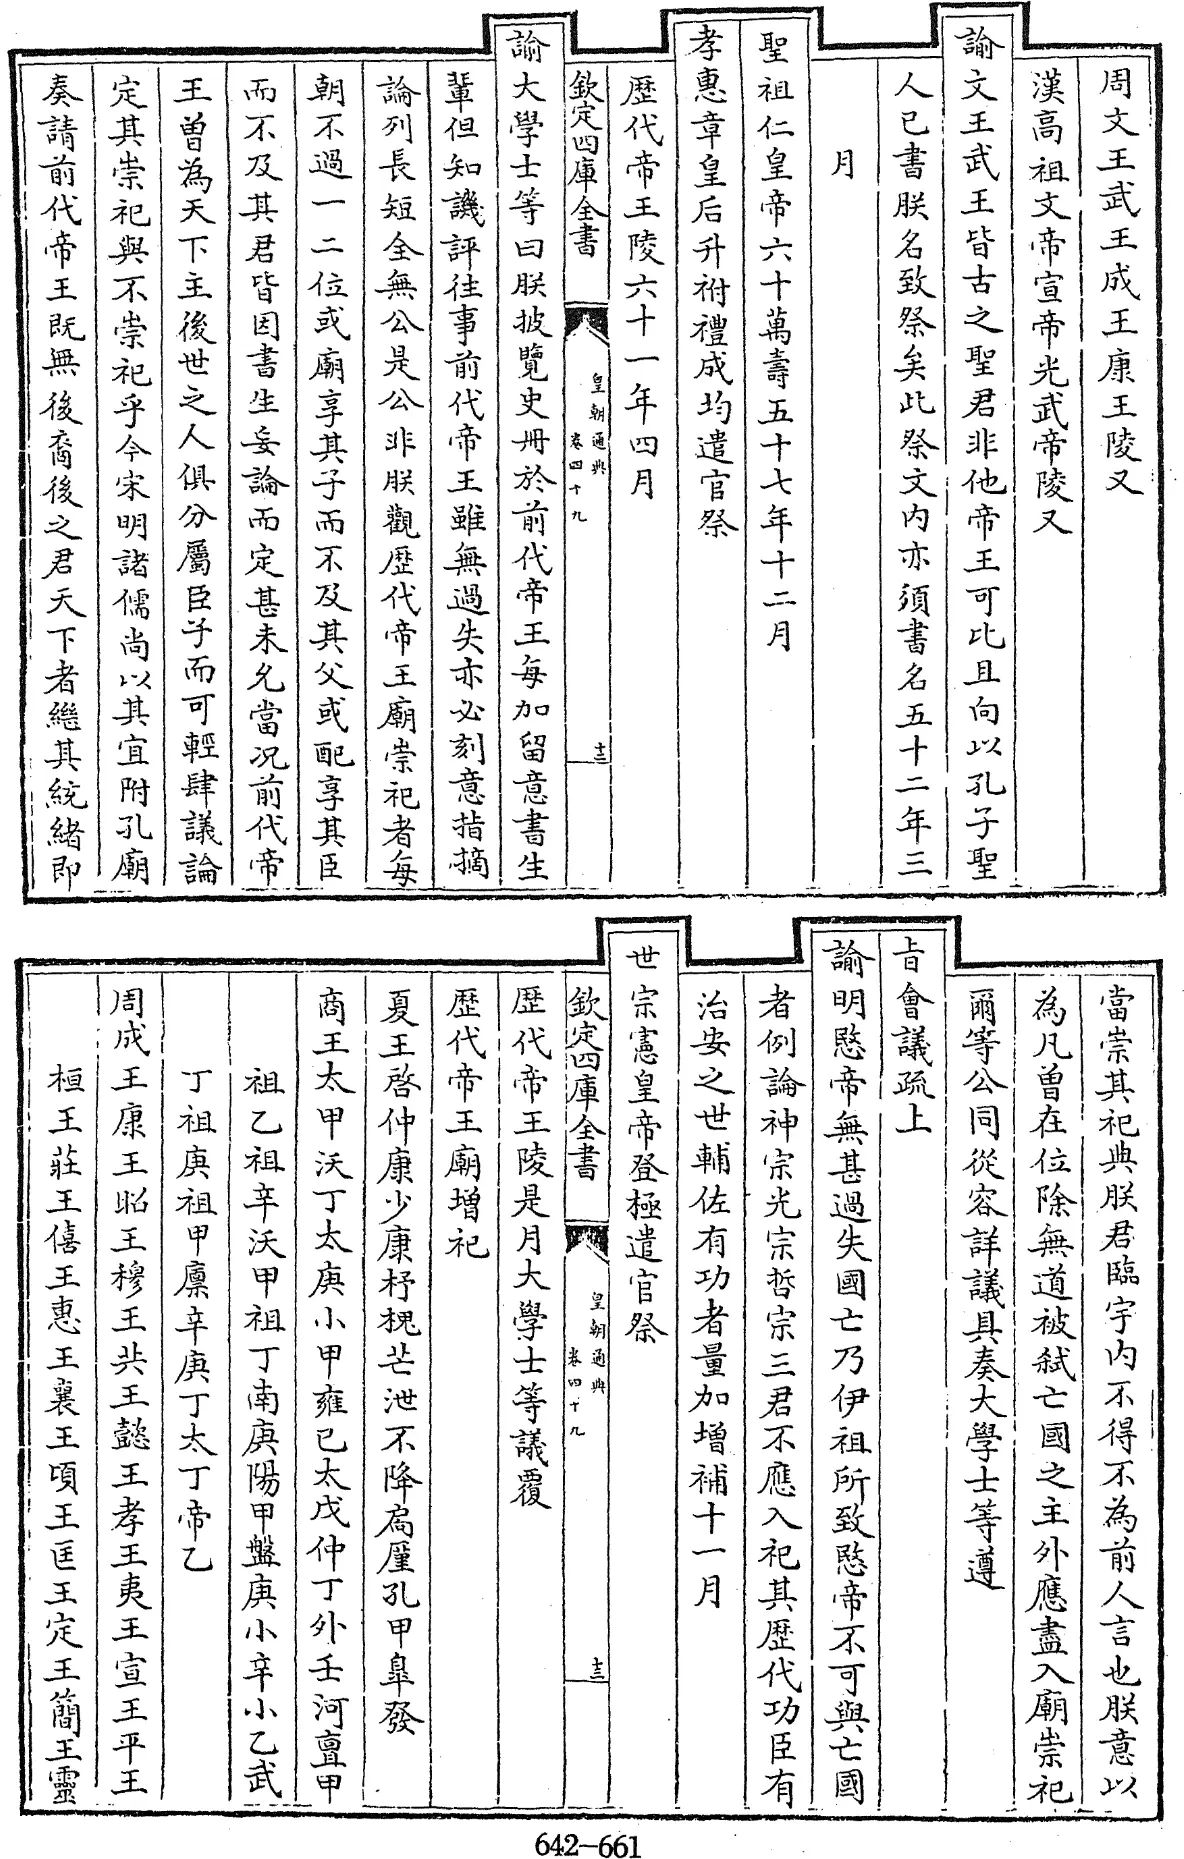 周文王武王成王康王陵又
漢高祖文帝宣帝光武帝陵又
諭文王武王皆古之聖君非他帝王可比且向以孔子聖
人已書朕名致祭矣此祭文内亦須書名五十二年三
月
聖祖仁皇帝六十萬壽五十七年十二月
孝惠章皇后升祔禮成均遣官祭
歷代帝王陵六十一年四月
欽定四庫全書
皇朝通典
卷四十九
十二
諭大學士等曰朕披覽史冊於前代帝王每加留意書生
輩但知譏評往事前代帝王雖無過失亦必刻意指摘
論列長短全無公是公非朕觀歷代帝王廟崇祀者每
朝不過一二位或廟享其子而不及其父或配享其臣
而不及其君皆因書生妄論而定甚未允當况前代帝
王曾為天下主後世之人俱分屬臣子而可輕肆議論
定其崇祀與不崇祀乎今宋明諸儒尚以其宜附孔廟
奏請前代帝王既無後裔後之君天下者繼其統緒即
當崇其祀典朕君臨宇内不得不為前人言也朕意以
為凡曾在位除無道被弒亡國之主外應盡入廟崇祀
爾等公同從容詳議具奏大學士等遵
旨會議疏上
諭明愍帝無甚過失國亡乃伊祖所致愍帝不可與亡國
者例論神宗光宗哲宗三君不應入祀其歷代功臣有
治安之世輔佐有功者量加增補十一月
世宗憲皇帝登極遣官祭
欽定四庫全書
皇朝通典
卷四十九
十三
歷代帝王陵是月大學士等議覆
歷代帝王廟增祀
夏王啓仲康少康杼槐芒泄不降扃廑孔甲臯發
商王太甲沃丁太庚小甲雍己太戊仲丁外壬河亶甲
祖乙祖辛沃甲祖丁南庚陽甲盤庚小辛小乙武
丁祖庚祖甲廪辛庚丁太丁帝乙
周成王康王昭王穆王共王懿王孝王夷王宣王平王
桓王莊王僖王惠王襄王頃王匡王定王簡王靈
642-661